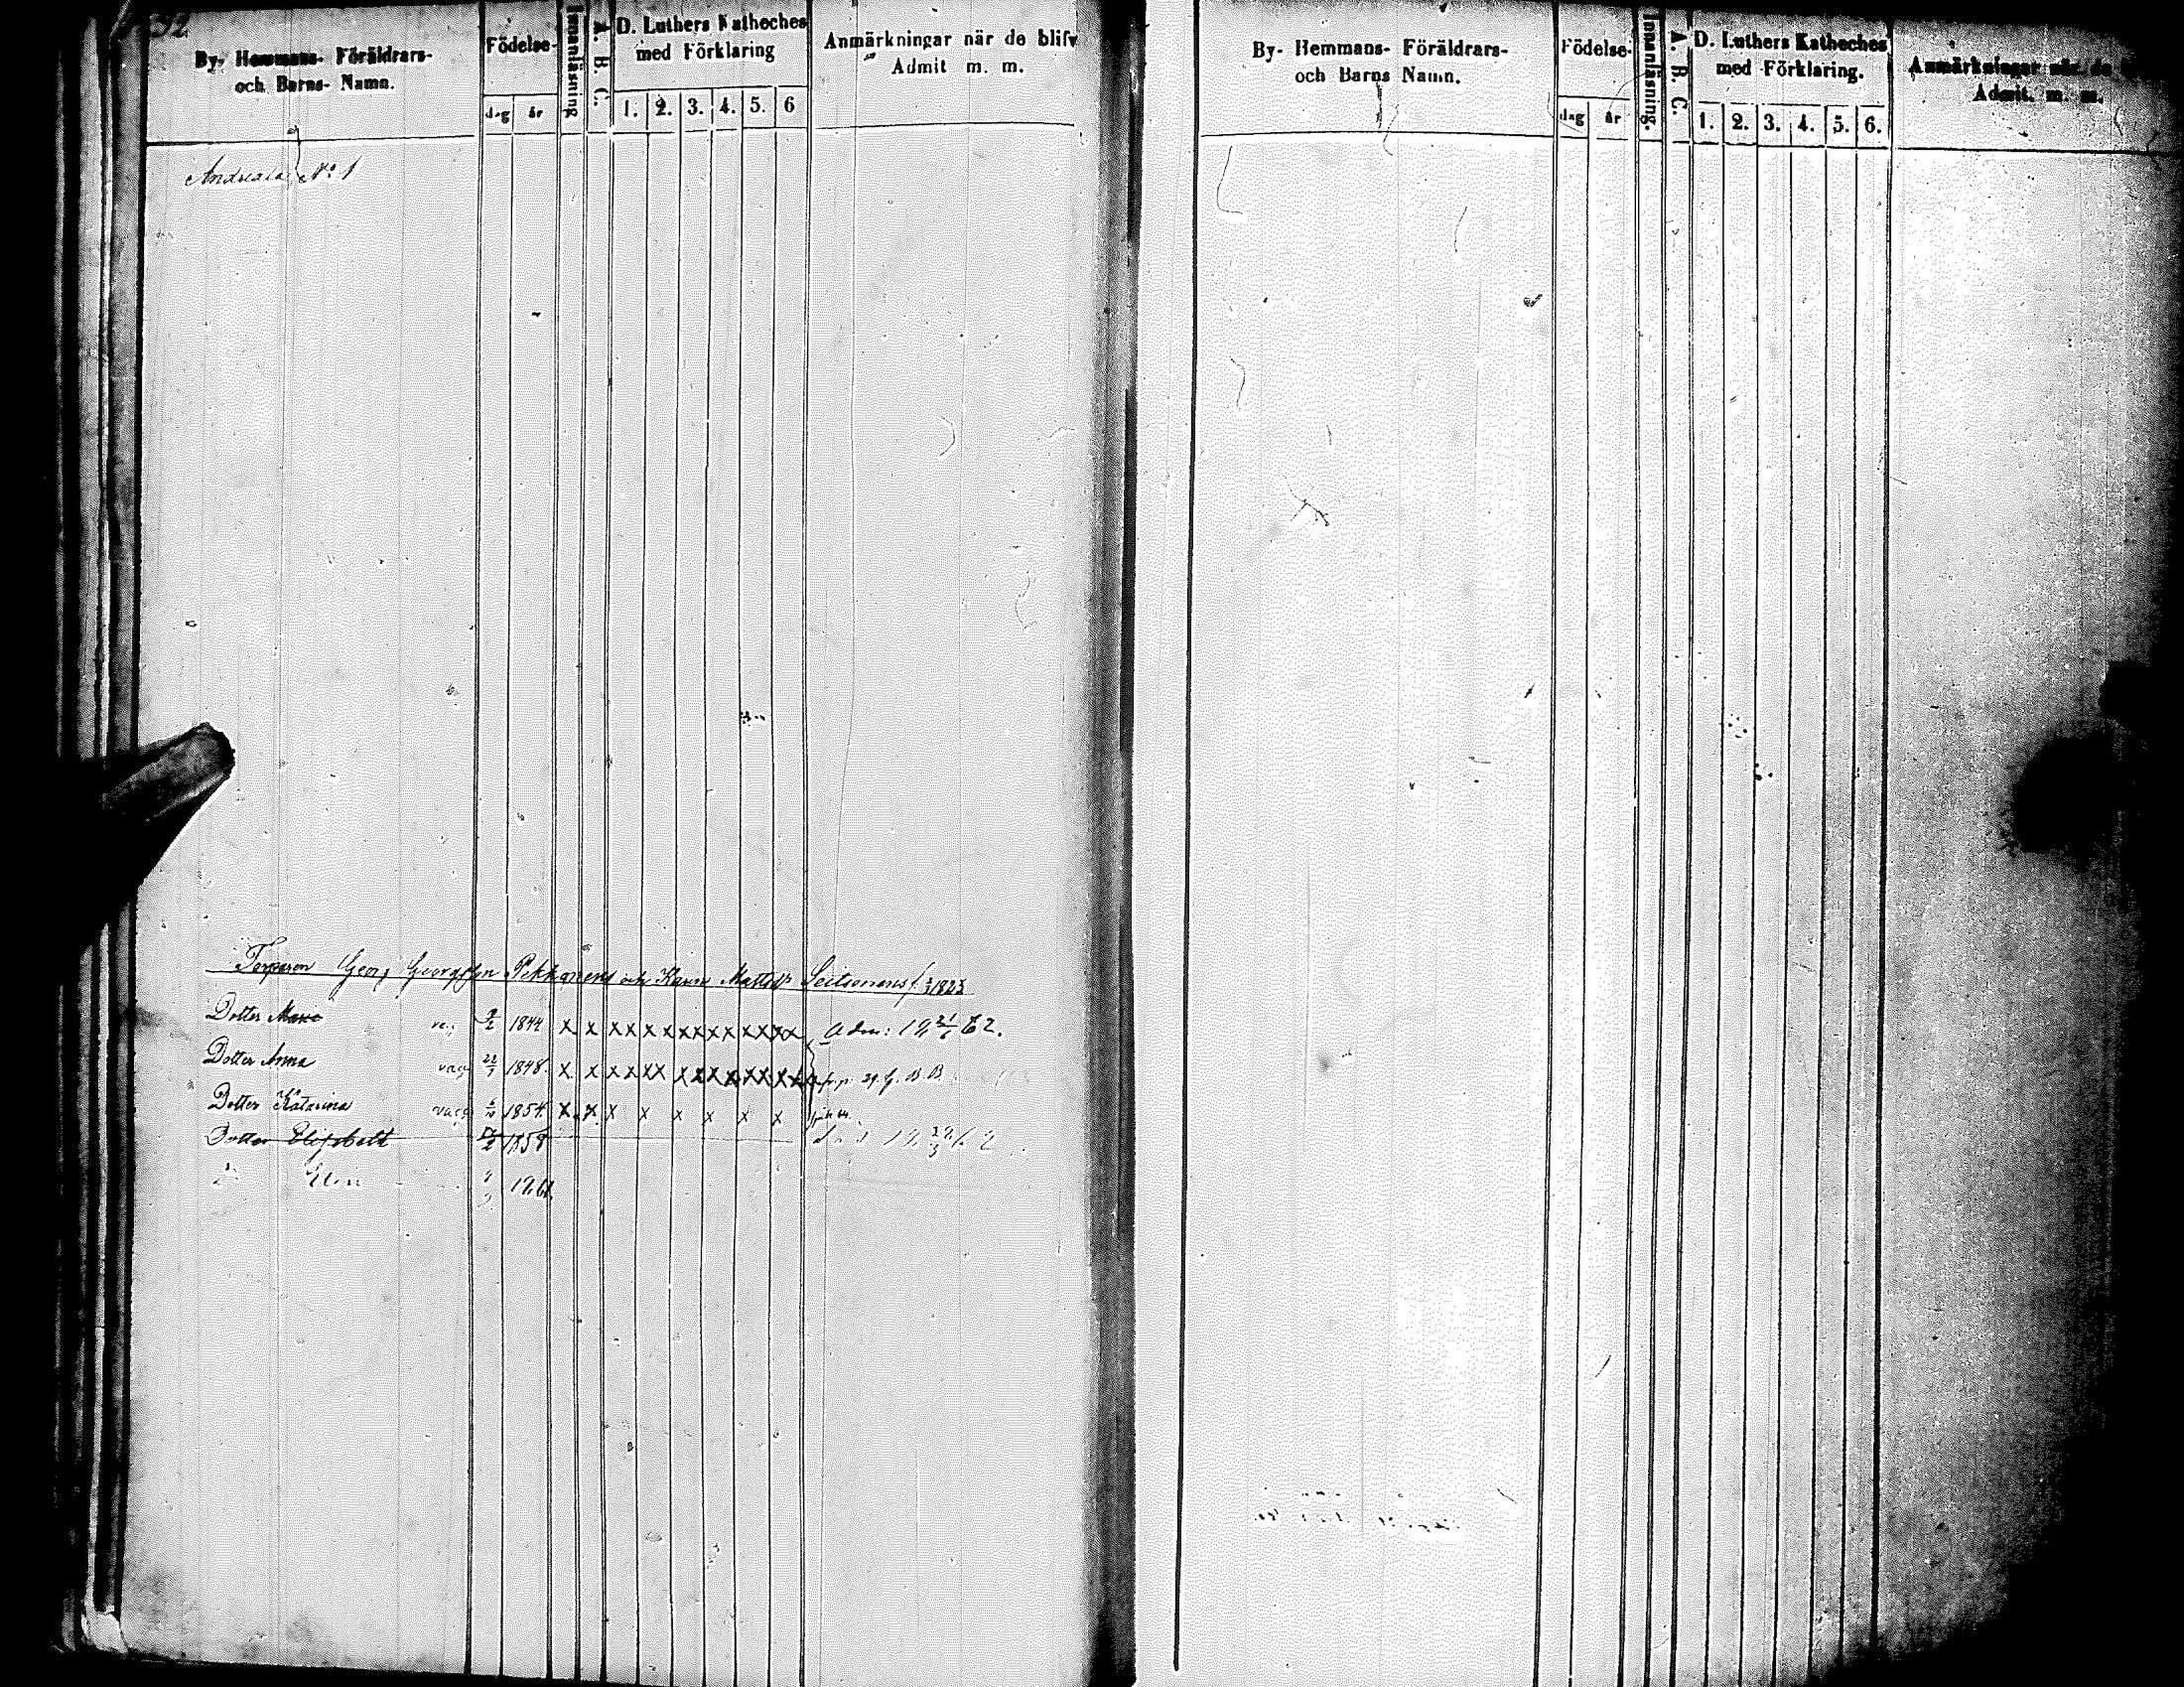 By- Hemmans- Föräldrars-
och Barns- Namn.
Födelse-
dag år
Innanläsning
A. B. C.
D. Luthers Katheches
med Förklaring
1. 2. 3. 4. 5. 6
Anmärkningar när de blifv
Admit m. m.
Andreala No 1
Torparen Georg Georgsson Pekkarinens och Karin Mattsdr Seitsonens f. 1823
Dotter Maria 9/2 1844 x x xx x x xx xx xx xx Adm: 18 21/6 62.
Dotter Anna vac 22/7 1848 x x x x xx x x x x xx x x
Dotter Katarina vacc 1854 x x x x x x x x
Dotter Elisabeth 1858 18 29/3 62
Elin 1861
By- Hemmans- Föräldrars-
och Barns Namn.
Födelse-
dag år
Innanläsning.
A B. C.
D. Luthers Katheches
med Förklaring.
1. 2. 3. 4. 5. 6.
Anmärkningar när de
Admit. m. m.